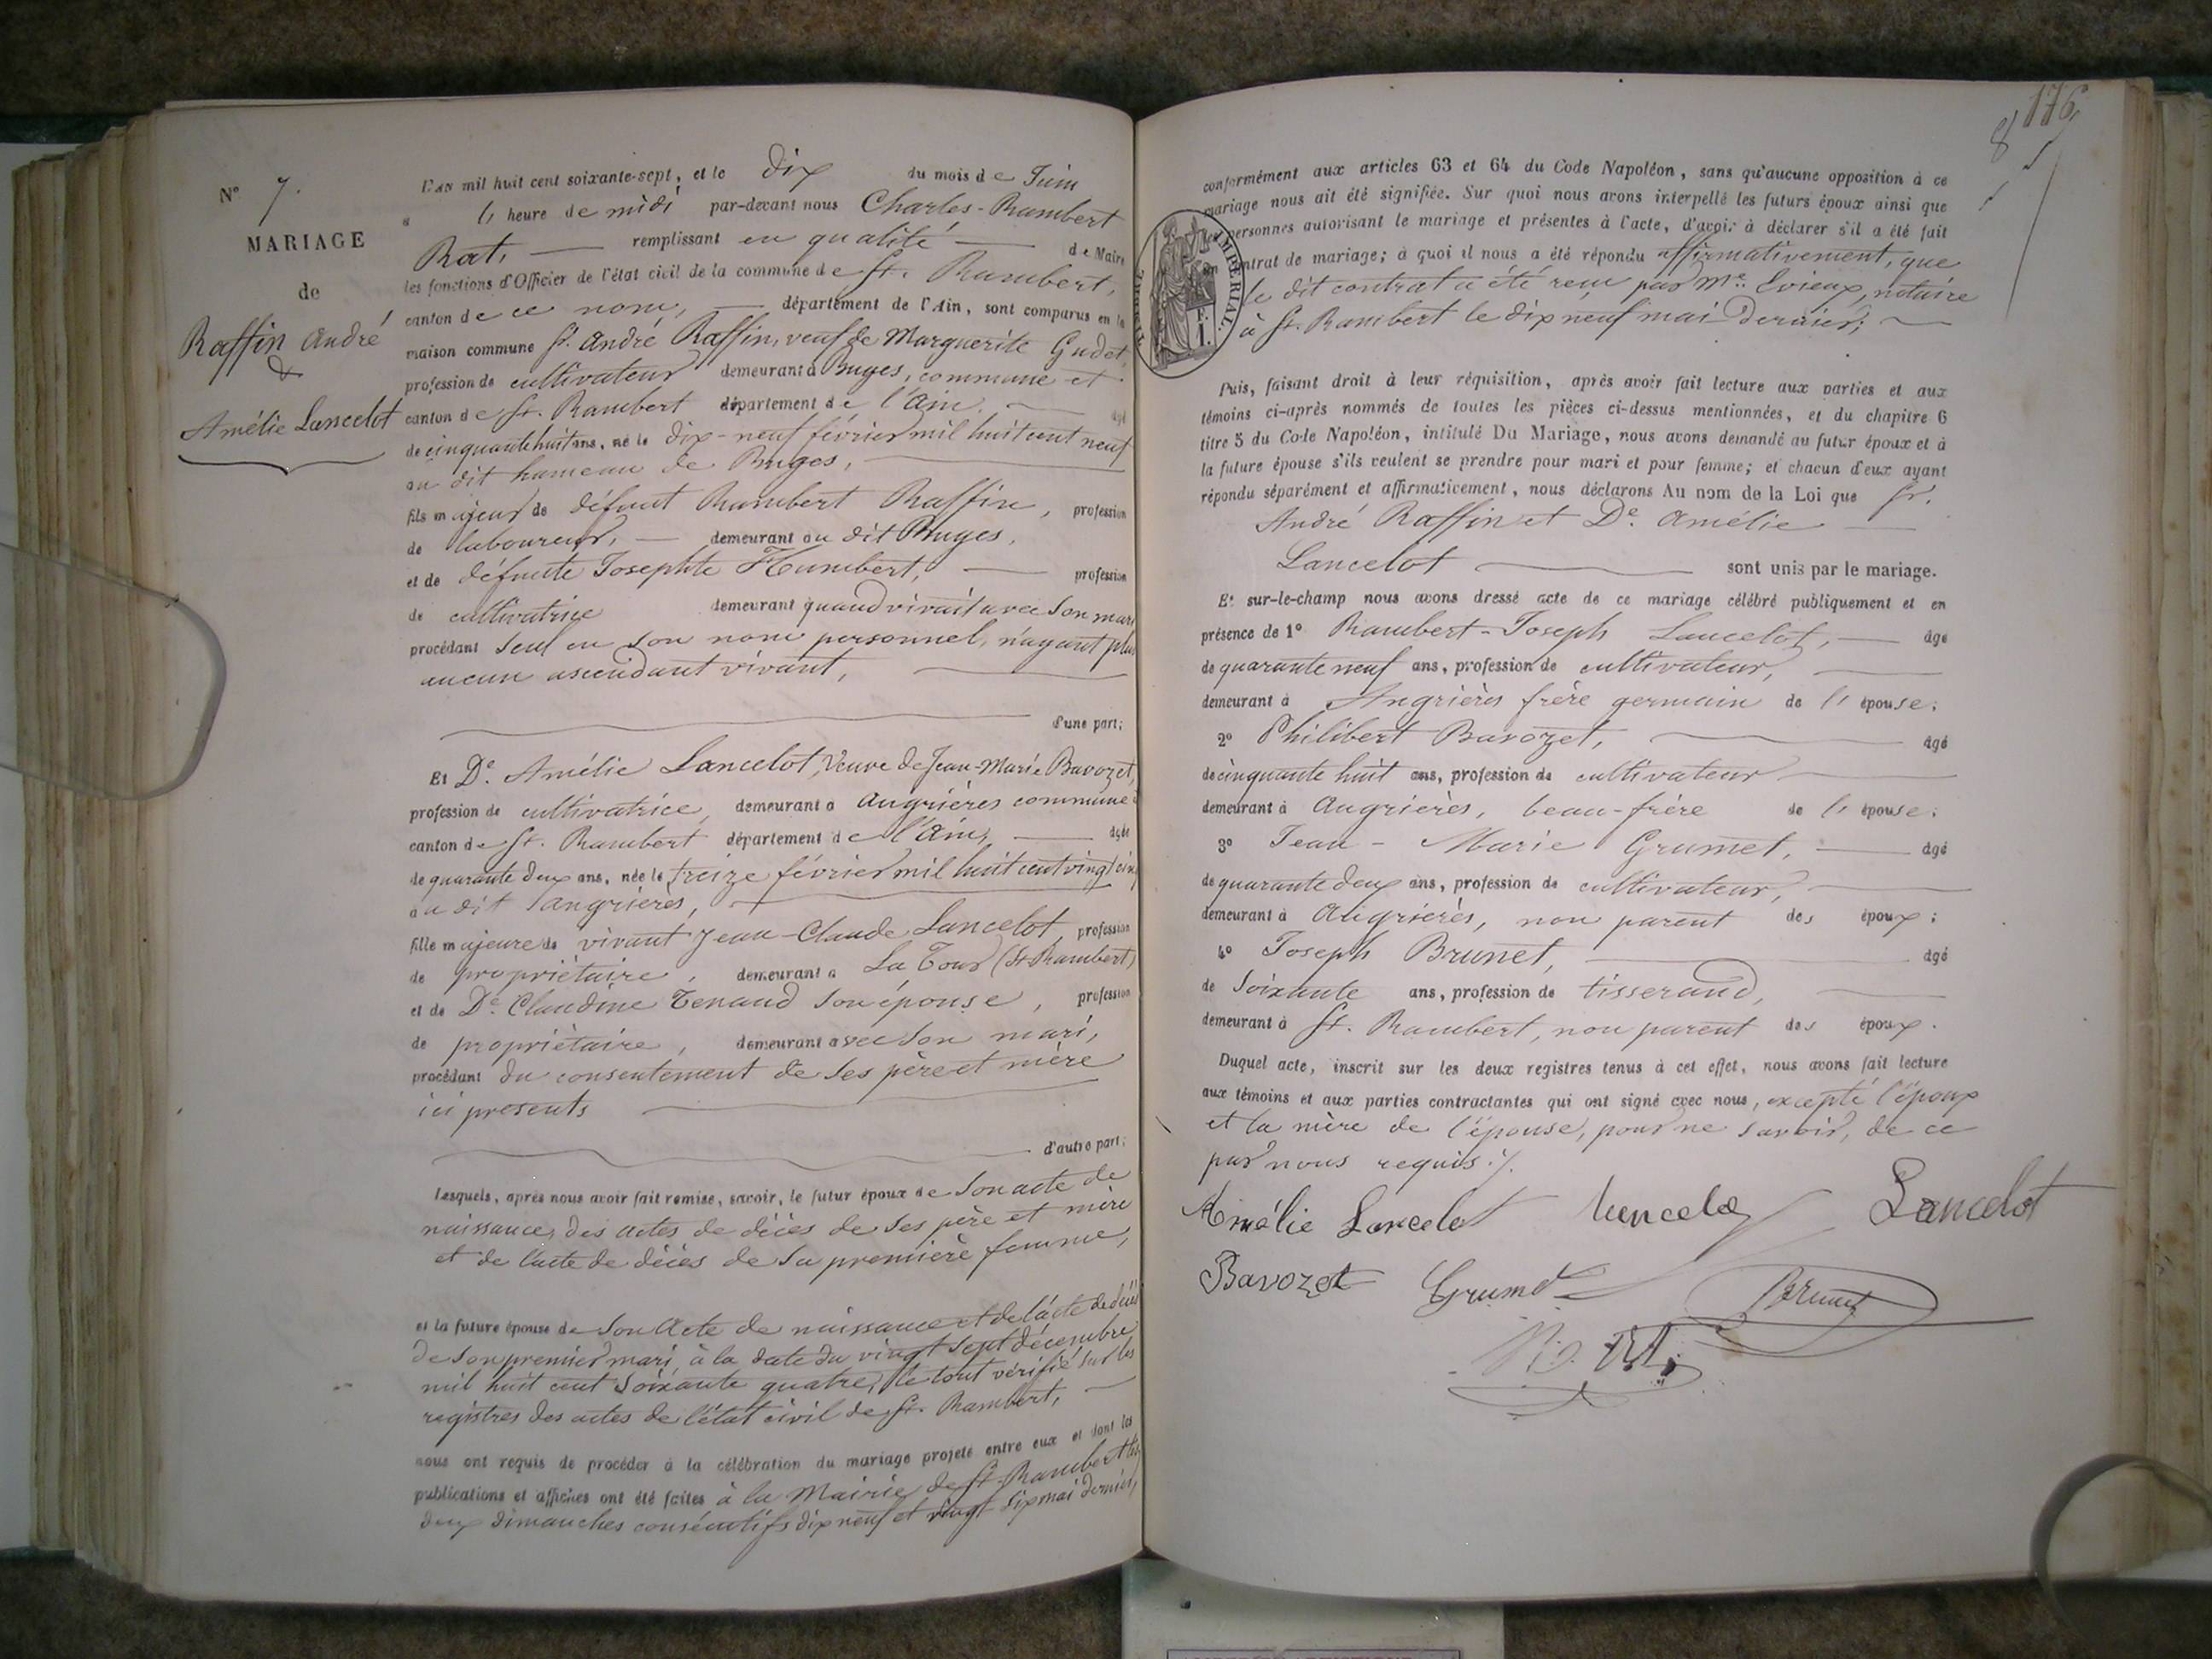 N° 7.
MARIAGE
de
Raffin André
&
Amélie Lancelot
L'AN mil huit cent soixante-sept, et le dix du mois de Juin
à l' heure de midi par-devant nous Charles-Rambert
Rat, remplissant en qualité de Maire
les fonctions d'Officier de l'état civil de la commune de St. Rambert,
canton de ce nom, département de l'Ain, sont comparus en la
maison commune Sr. André Raffin, veuf de Marguerite Gudet,
profession de cultivateur demeurant à Buges, commune et
canton de St. Rambert département de l'Ain. âgé
de cinquante huit ans, né le dix-neuf février mil huit cent neuf
au dit hameau de Buges,
fils majeur de défunt Rambert Raffin, profession
de laboureur, demeurant au dit Buges,
et de défunte Josephte Humbert, profession
de cultivatrice demeurant quand vivait avec son mari
procédant seul en son nom personnel, n'ayant plus
aucun ascendant vivant,
d'une part;
Et De. Amélie Lancelot, Veuve de Jean-Marie Bavozet,
profession de cultivatrice, demeurant à Angrières commune &
canton de St. Rambert département de l'Ain, âgée
de quarante deux ans, née le treize février mil huit cent vingt cinq
au dit Angrières,
fille majeure de vivant Jean-Claude Lancelot, profession
de propriétaire, demeurant à La Tour (St Rambert)
et de De. Claudine Tenaud son épouse, profession
de propriétaire, demeurant avec son mari,
procédant du consentement de ses père et mère
ici présents
d'autre part;
Lesquels, après nous avoir fait remise, savoir, le futur époux de son acte de
naissance, des actes de décès de ses père et mère
et de l'acte de décès de sa première femme,
et la future épouse de son acte de naissance et de l'acte de décès
de son premier mari, à la date du vingt sept décembre
mil huit cent soixante quatre, le tout vérifié sur les
registres des actes de l'état civil de St. Rambert,
nous ont requis de procéder à la célébration du mariage projeté entre eux et dont les
publications et affiches ont été faites à la Mairie de St. Rambert les
deux dimanches consécutifs dix neuf et vingt six mai dernier,
176
8
conformément aux articles 63 et 64 du Code Napoléon, sans qu'aucune opposition à ce
mariage nous ait été signifiée. Sur quoi nous avons interpellé les futurs époux ainsi que
les personnes autorisant le mariage et présentes à l'acte, d'avoir à déclarer s'il a été fait
un contrat de mariage; à quoi il nous a été répondu affirmativement, que
le dit contrat a été reçu par Me. Evieux, notaire
à St. Rambert le dix neuf mai dernier;
TIMBRE IMPÉRIAL
Puis, faisant droit à leur réquisition, après avoir fait lecture aux parties et aux
témoins ci-après nommés de toutes les pièces ci-dessus mentionnées, et du chapitre 6
titre 5 du Code Napoléon, intitulé Du Mariage, nous avons demandé au futur époux et à
la future épouse s'ils veulent se prendre pour mari et pour femme; et chacun d'eux ayant
répondu séparément et affirmativement, nous déclarons Au nom de la Loi que Sr.
André Raffin et De. Amélie
Lancelot sont unis par le mariage.
Et sur-le-champ nous avons dressé acte de ce mariage célébré publiquement et en
présence de 1° Rambert-Joseph Lancelot, âgé
de quarante neuf ans, profession de cultivateur,
demeurant à Angrières frère germain de l' épouse;
2° Philibert Bavozet, âgé
de cinquante huit ans, profession de cultivateur
demeurant à Angrières, beau-frère de l' épouse;
3° Jean-Marie Grumet, âgé
de quarante deux ans, profession de cultivateur,
demeurant à Angrières, non parent des époux;
4° Joseph Brunet, âgé
de Soixante ans, profession de tisserand,
demeurant à St. Rambert, non parent des époux.
Duquel acte, inscrit sur les deux registres tenus à cet effet, nous avons fait lecture
aux témoins et aux parties contractantes qui ont signé avec nous, excepté l'époux
et la mère de l'épouse, pour ne savoir, de ce
par nous requis ./.
Amélie Lancelot Lancelot
Bavozet Grumet Brunet